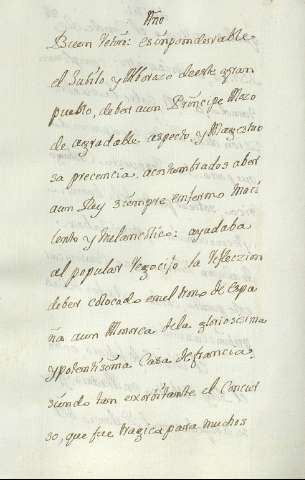 Año
Buen Retiro: es imponderable
el Jubilo y Alborozo de este gran
pueblo, de ber a un Principe Mozo
de agradable aspecto, y Magestuo
sa precencia, acostumbrados a ber
a un Rey siempre enfermo maci
lento y melancolico: ayudaba
al popular Regocijo la Reflexion
de ber colocado en el trono de Espa
ña a un Monarca de la gloriosisima
y potentisima Casa de francia,
siendo tan exorbitante el Concur
so, que fue tragica para muchos